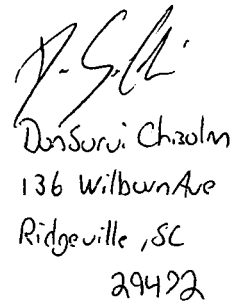 DonSurvi Chisolm
136 Wilburn Ave
Ridgeville, SC
29472